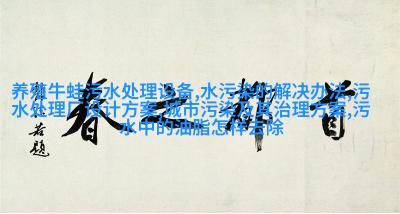 养殖牛蛙污水处理设备,水污染的解决办法,污
水处理厂设计方案,城市污染及其治理方案,污
水中的油脂怎样去除
首都之春
郭沫若题